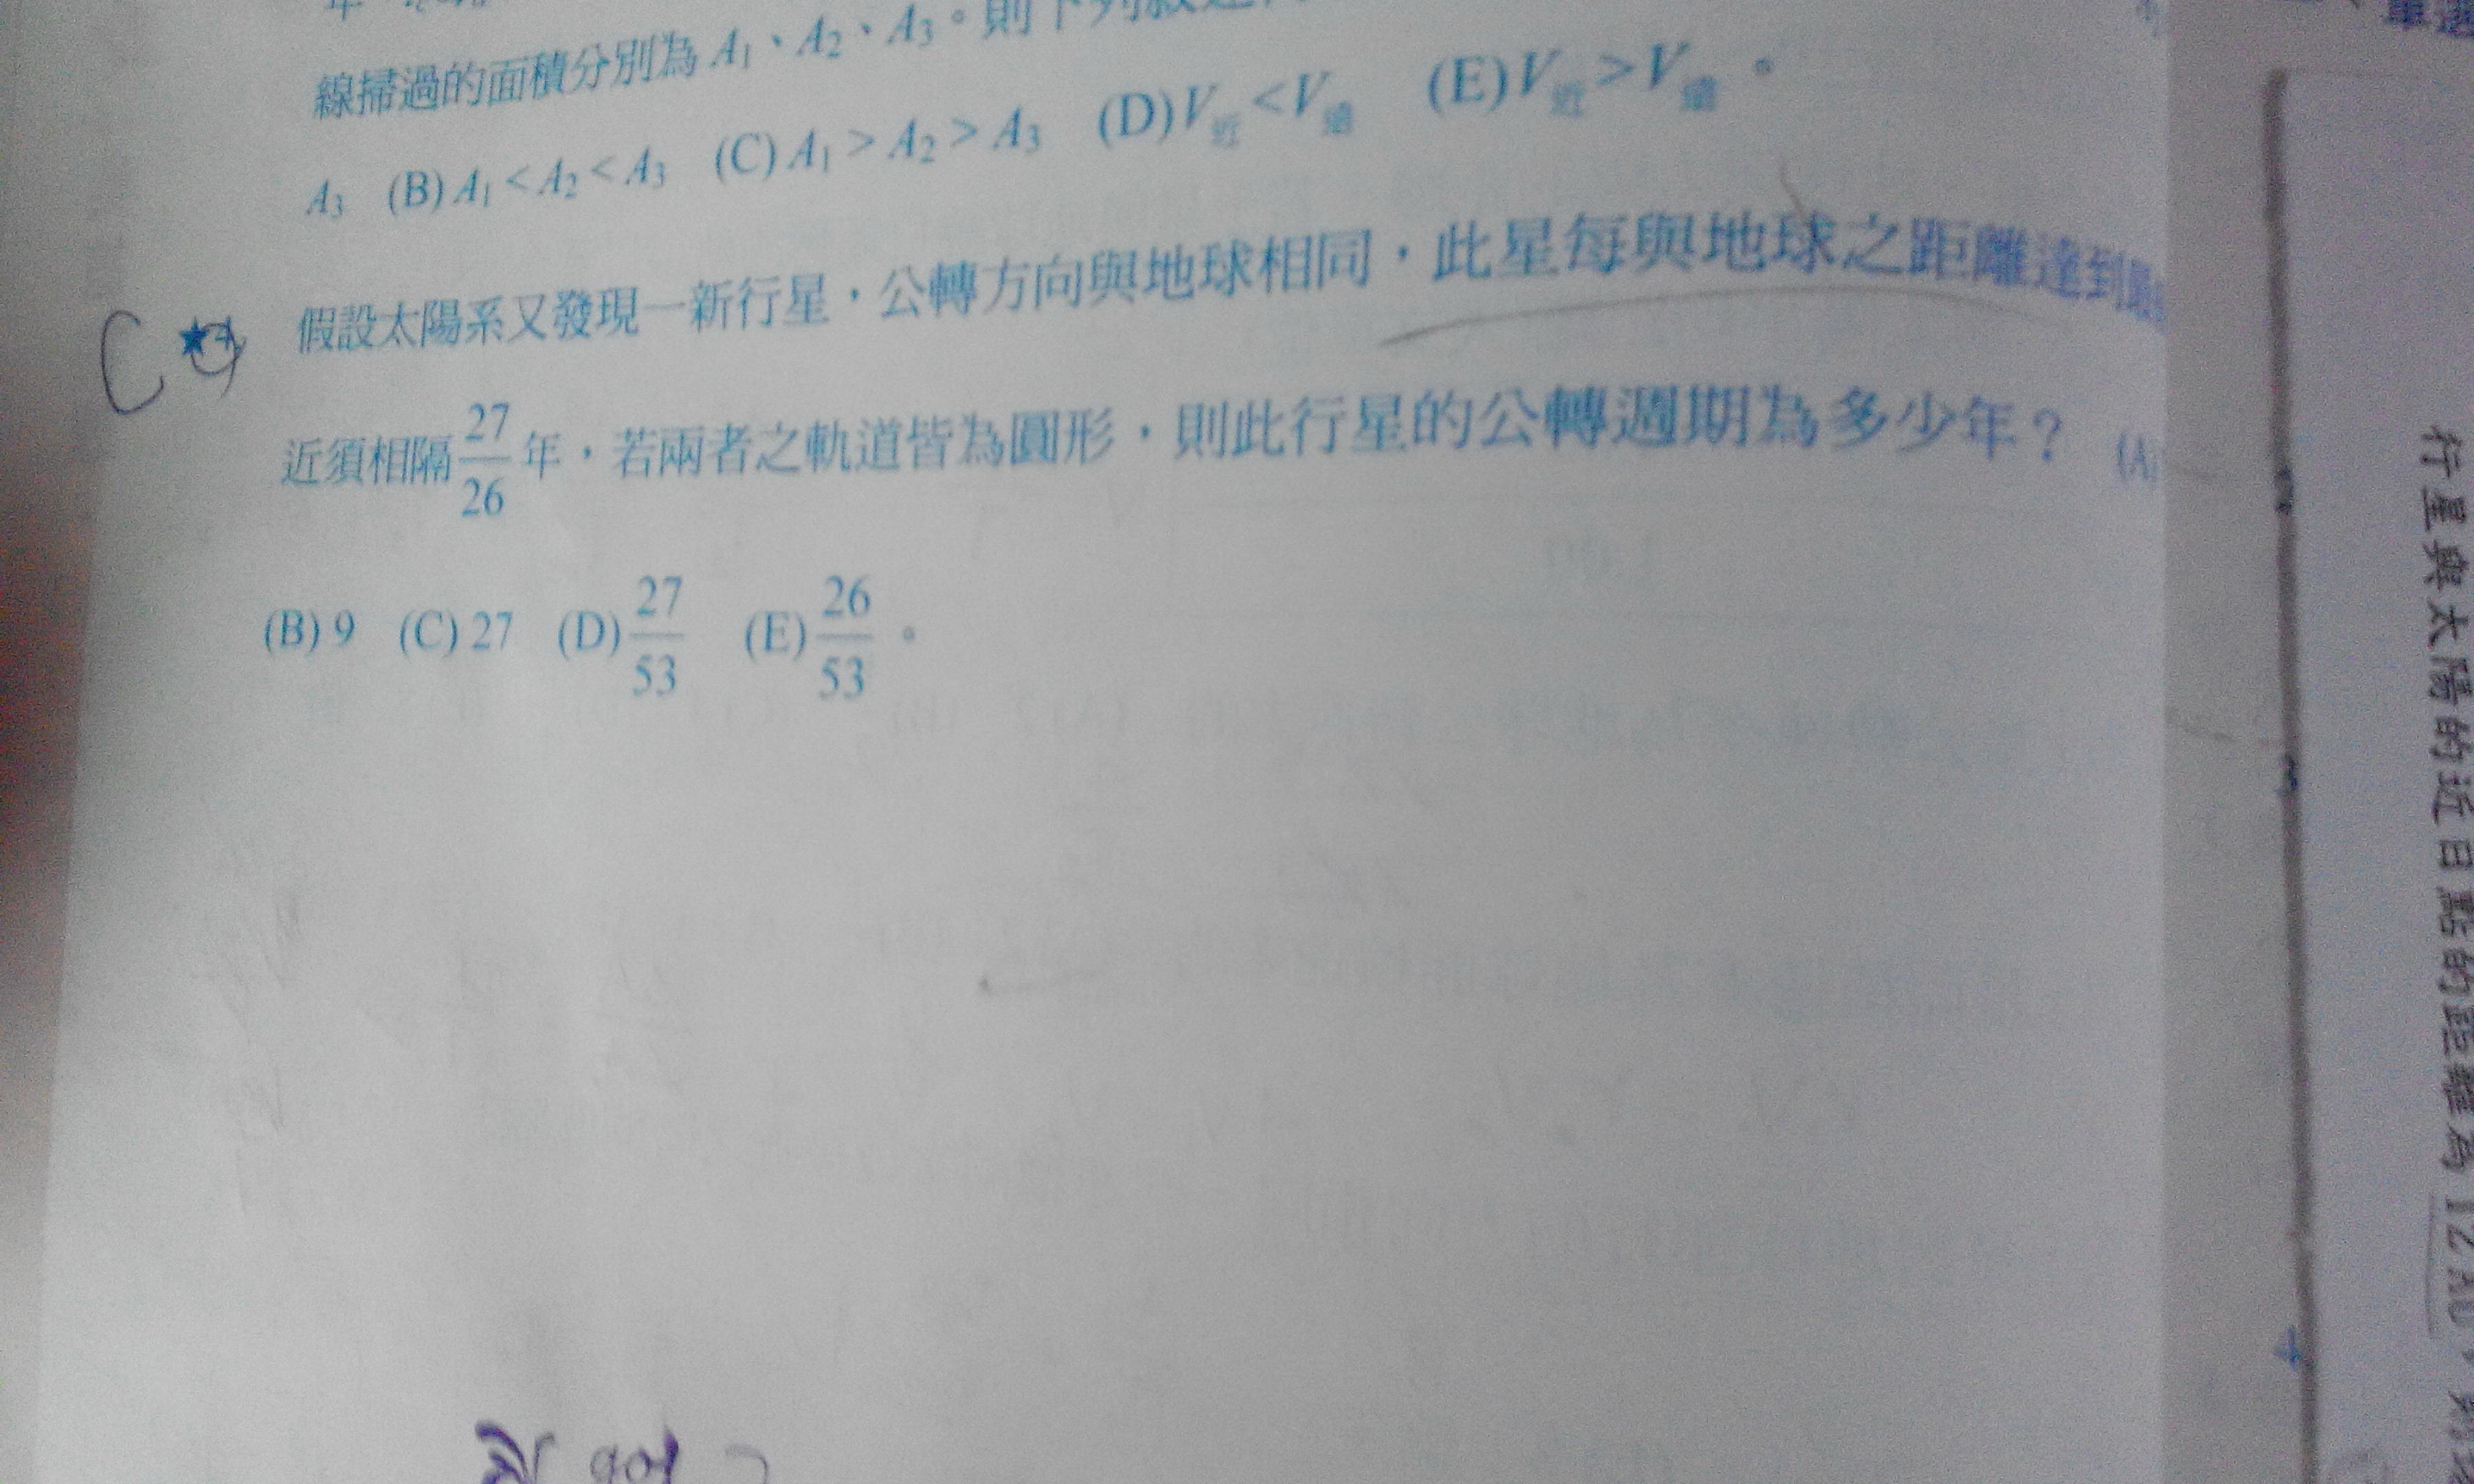 線掃過的面積分別為 A₁、A₂、A₃。則下列敘述
A₃ (B) A₁ < A₂ < A₃ (C) A₁ > A₂ > A₃ (D) V近 < V遠 (E) V近 > V遠。
C ★4 假設太陽系又發現一新行星，公轉方向與地球相同，此星每與地球之距離達到最
近須相隔 27/26 年，若兩者之軌道皆為圓形，則此行星的公轉週期為多少年？ (A)
(B) 9 (C) 27 (D) 27/53 (E) 26/53。
行星與太陽的近日點的距離為 12 AU，
4